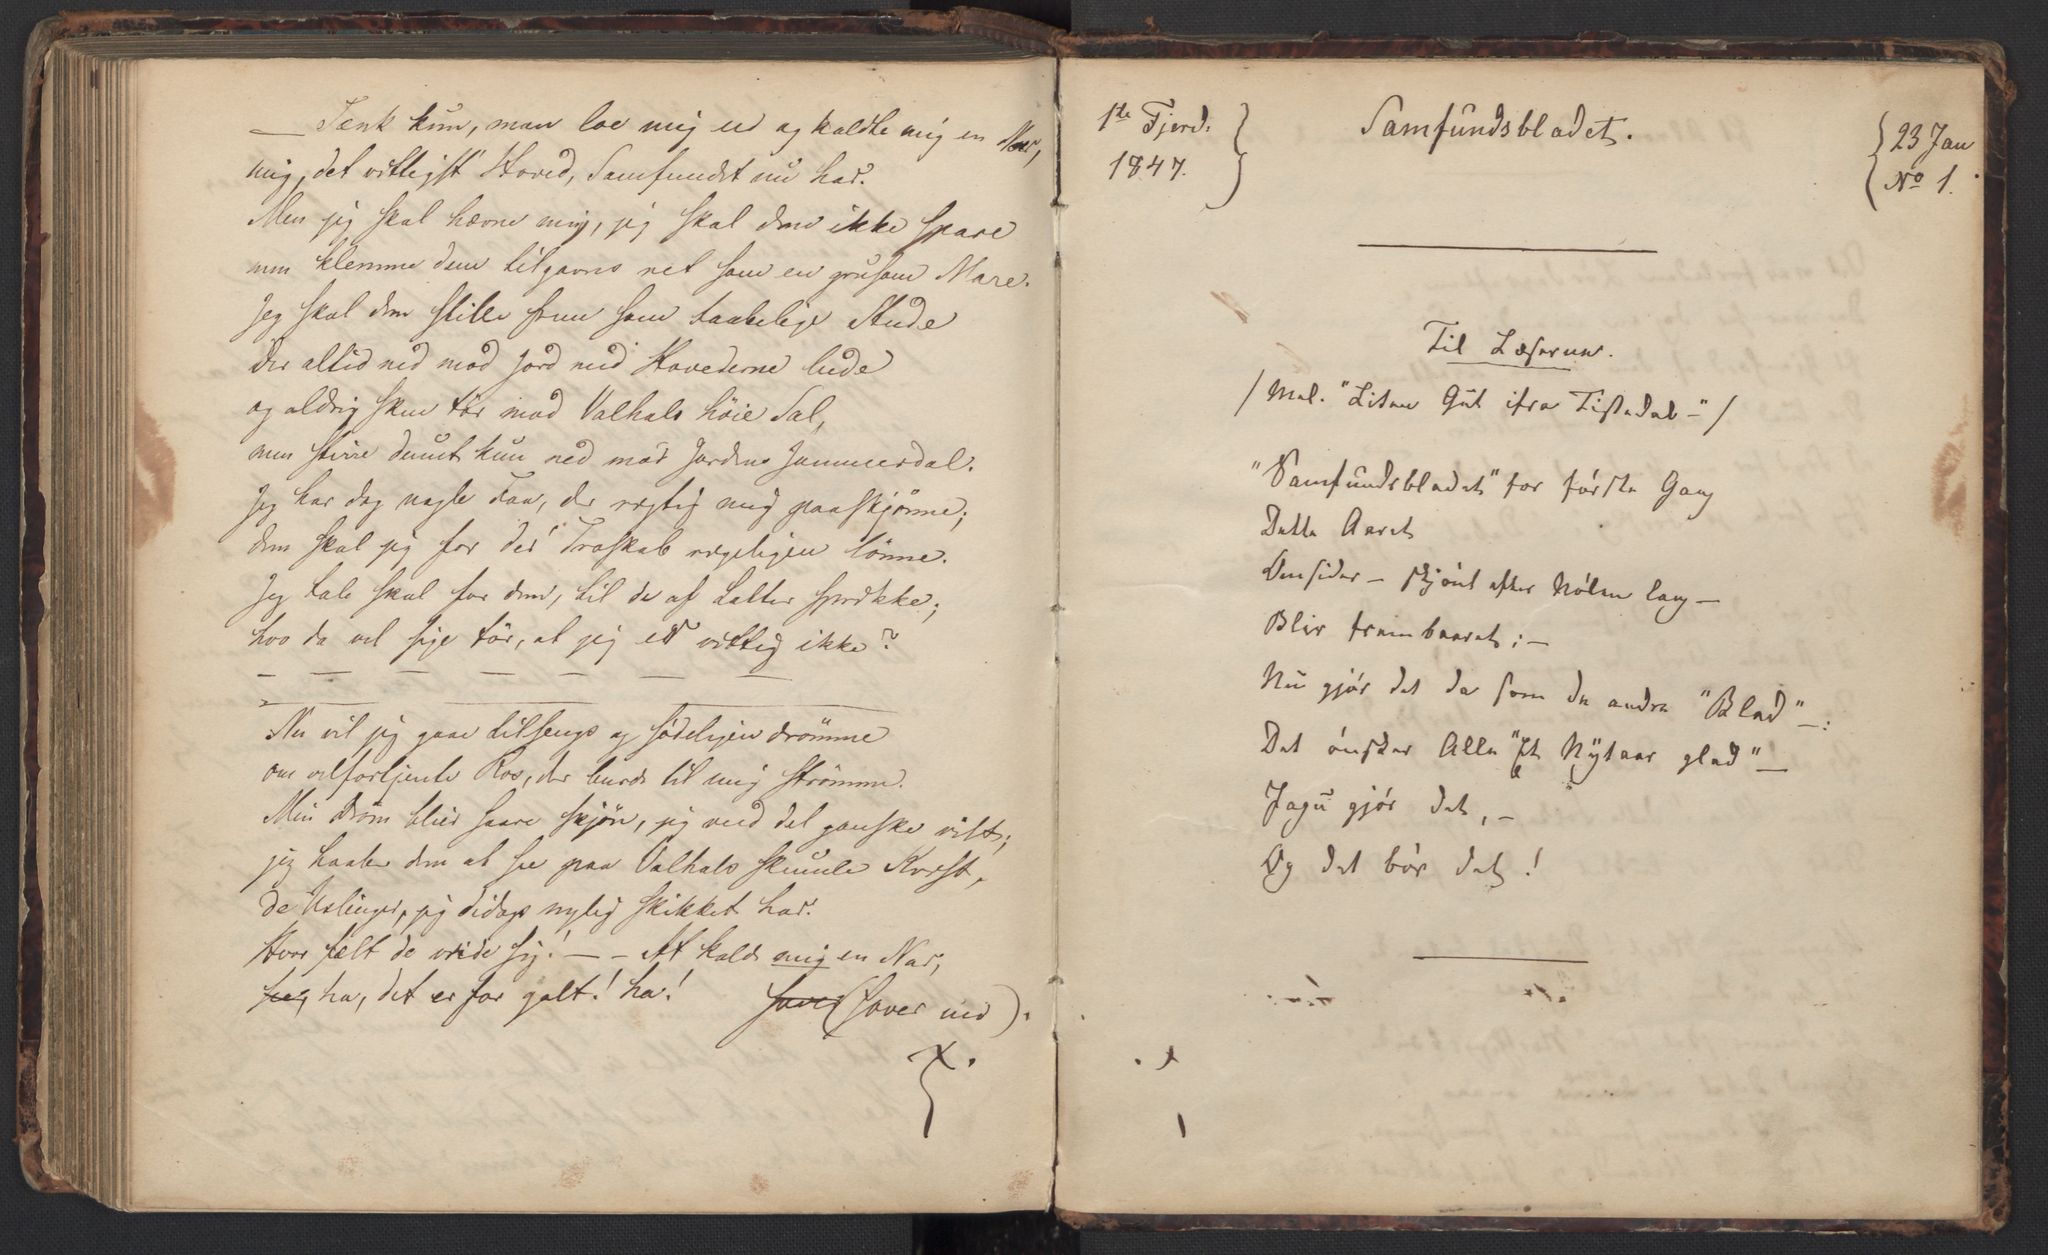 — Tænk kun, man loe mig ud og kaldte mig en Nar,
mig, det vittigst' Hoved, Samfundet nu har.
Men jeg skal hævne mig, jeg skal dem ikke spare
men klemme dem tilgavns ret som en grusom Mare.
Jeg skal dem stille frem som taabelige Stude
der altid ned mod Jord med Hovederne lude
og aldrig skue tør mod Valhals höie Sal,
men stirre dumt kun ned mod Jordens Jammerdal.
Jeg har dog nogle Faa, der rigtig mig paaskjönne;
dem skal jeg for der' Troskab rigeligen lönne.
Jeg tale skal for dem, til de af Latter sprække;
hvo da vel sige tör, at jeg er vittig ikke?
— — — — — — —
Nu vil jeg gaae tilsengs og södeligen drömme
om velfortjente Ros, der burde til mig strömme.
Min Dröm blier saare skjön, jeg veed det ganske vist;
jeg haaber dem at see paa Valhals skumle Kvist,
de Uslinger, jeg didop nylig skikket har.
Hvor fælt de vride sig! — – At kalde mig en Nar,
ha, det er for galt! ha! (sover ind).
X.
1ste Fjerd.
1847.
Samfundsbladet.
23 Jan
No 1.
Til Læserne.
/ Mel. "Liten Gut ifra Tistedal –" /
"Samfundsbladet" for förste Gang
Dette Aaret
Omsider – skjönt efter Nölen lang –
Blir frembaaret; –
Nu gjör det da som de andre "Blad" –:
Det önsker Alle "Et Nytaar glad" –
Jagu gjör det, –
Og det bör det!